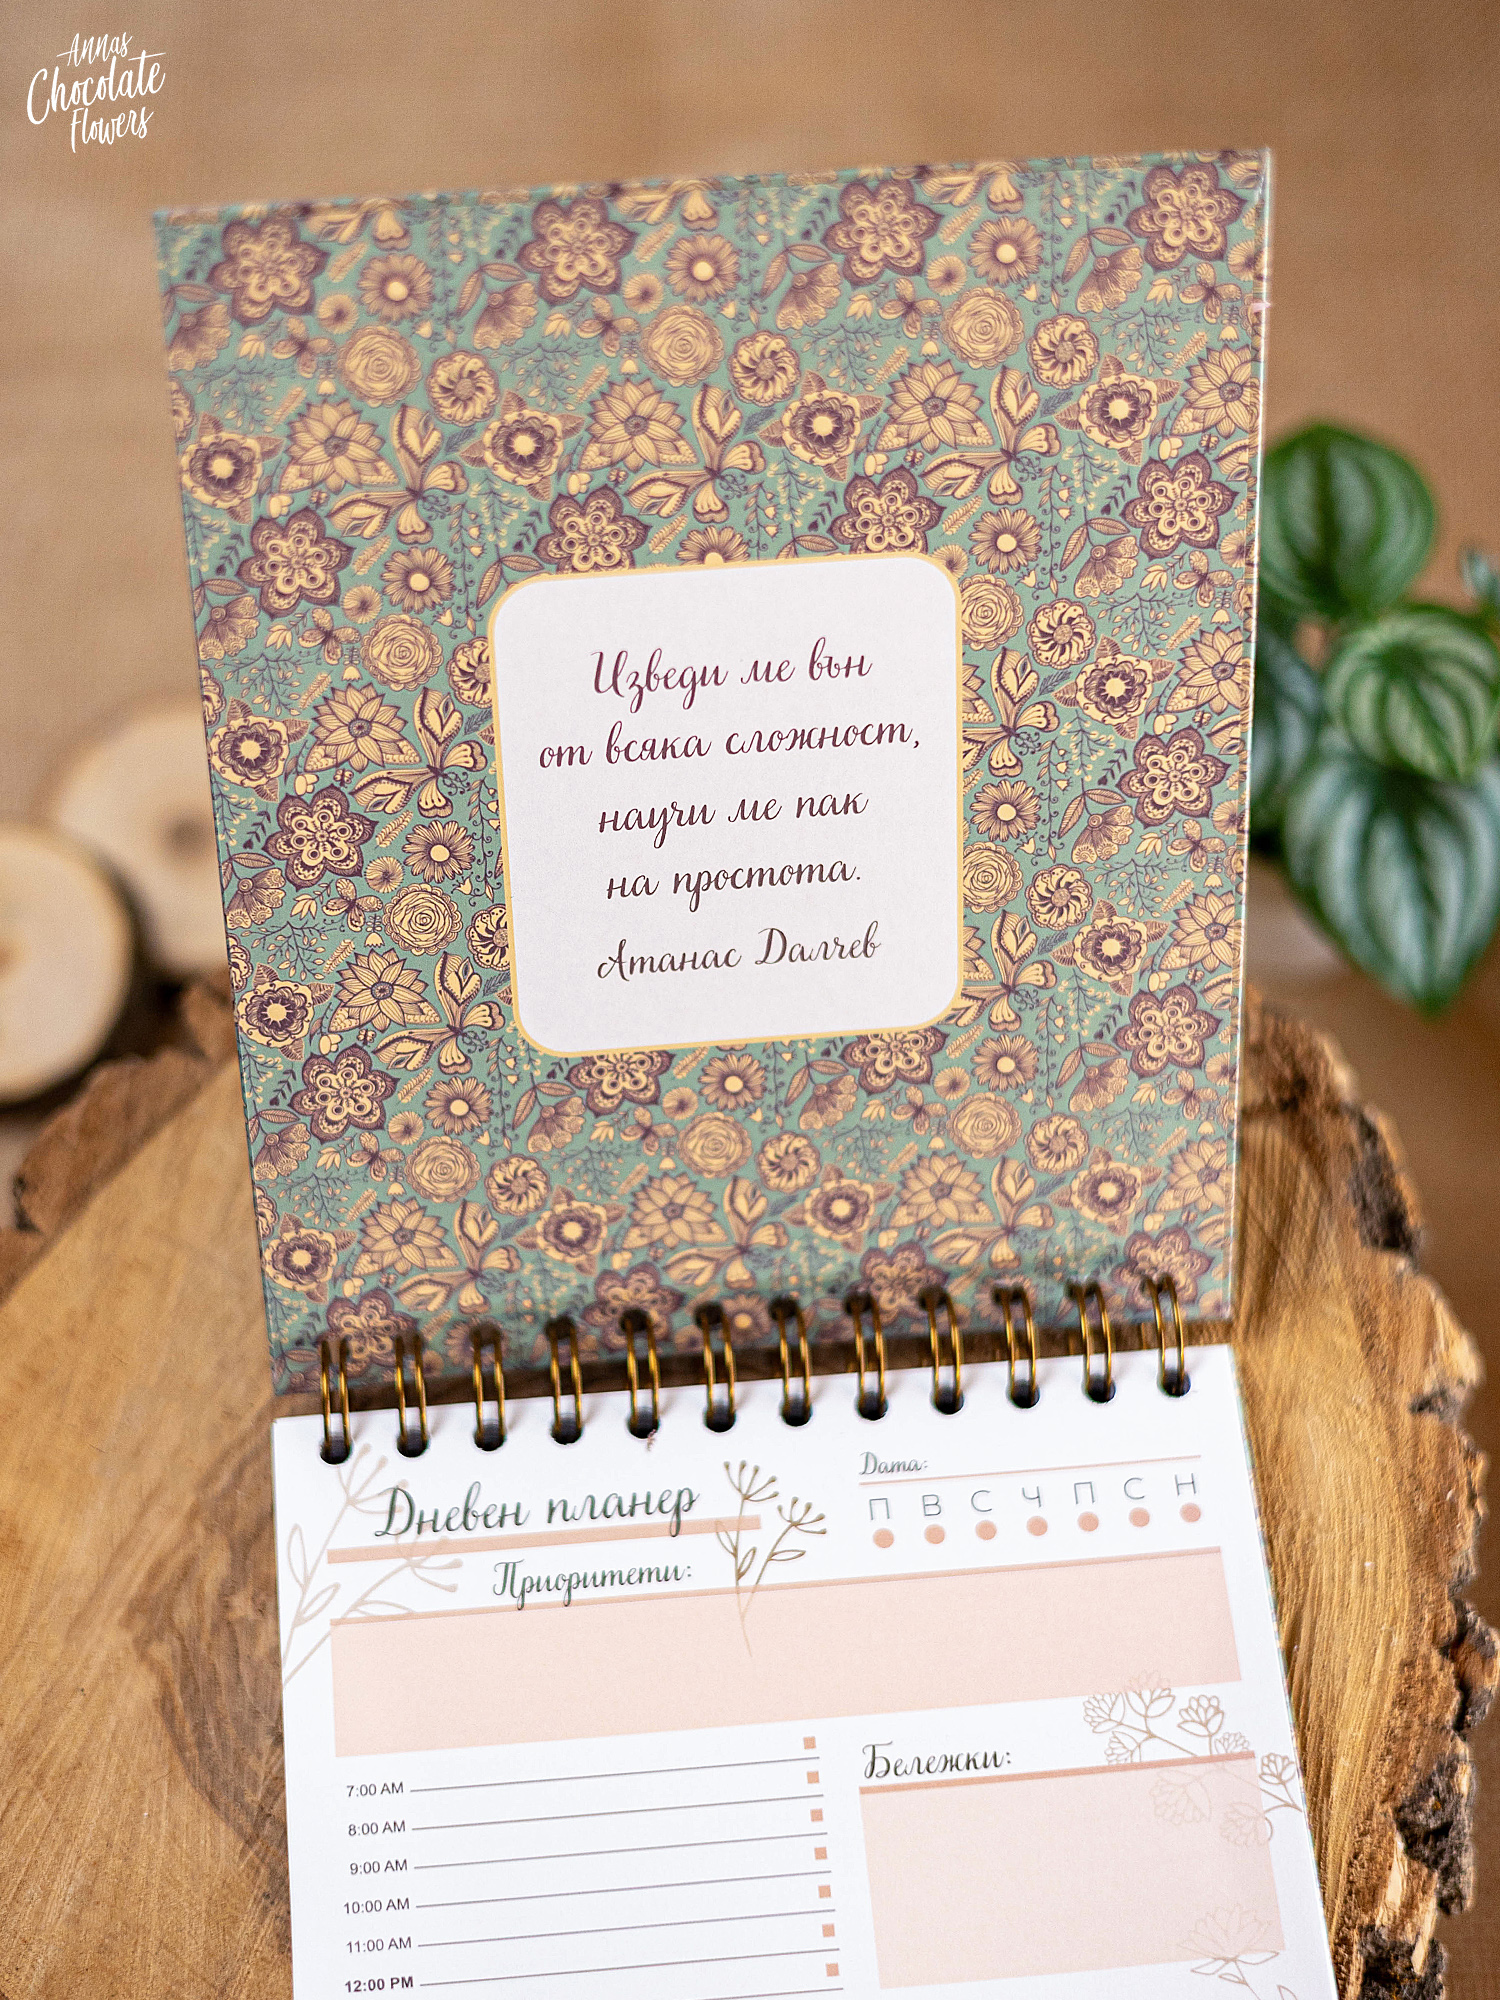 Annas
Chocolate
Flowers
Изведи ме вън
от всяка сложност,
научи ме пак
на простота.
Атанас Далчев
Дневен планер
Дата:
П В С Ч П С Н
Приоритети:
7:00 AM
8:00 AM
9:00 AM
10:00 AM
11:00 AM
12:00 PM
Бележки: